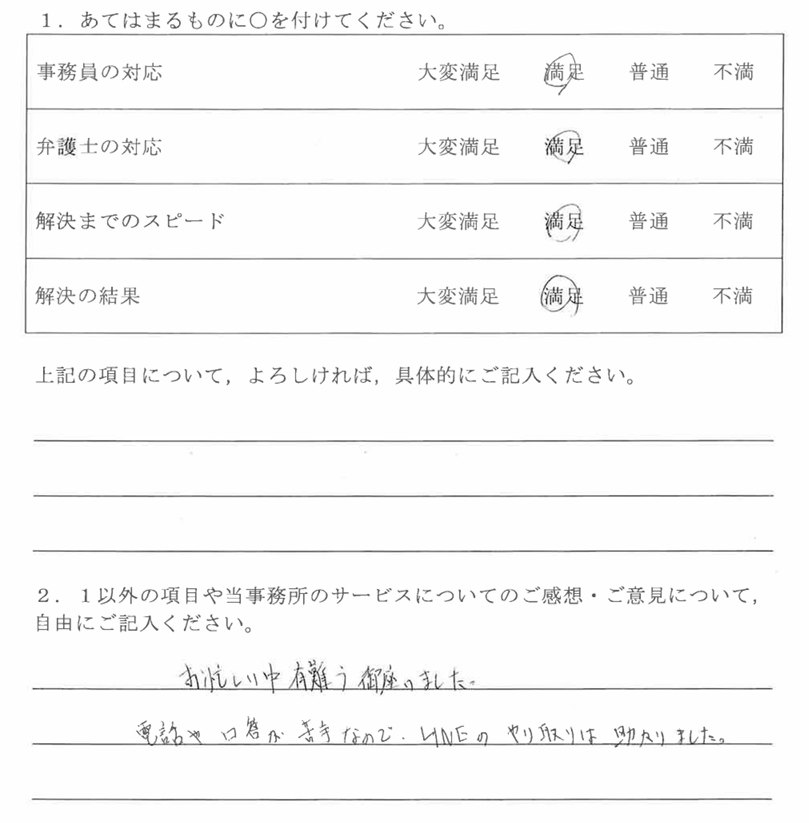 1．あてはまるものに〇を付けてください。
事務員の対応 大変満足 満足 普通 不満
弁護士の対応 大変満足 満足 普通 不満
解決までのスピード 大変満足 満足 普通 不満
解決の結果 大変満足 満足 普通 不満
上記の項目について，よろしければ，具体的にご記入ください。
2．1以外の項目や当事務所のサービスについてのご感想・ご意見について，
自由にご記入ください。
お忙しい中有難う御座いました。
電話や口答が苦手なので、LINEのやり取りは助かりました。